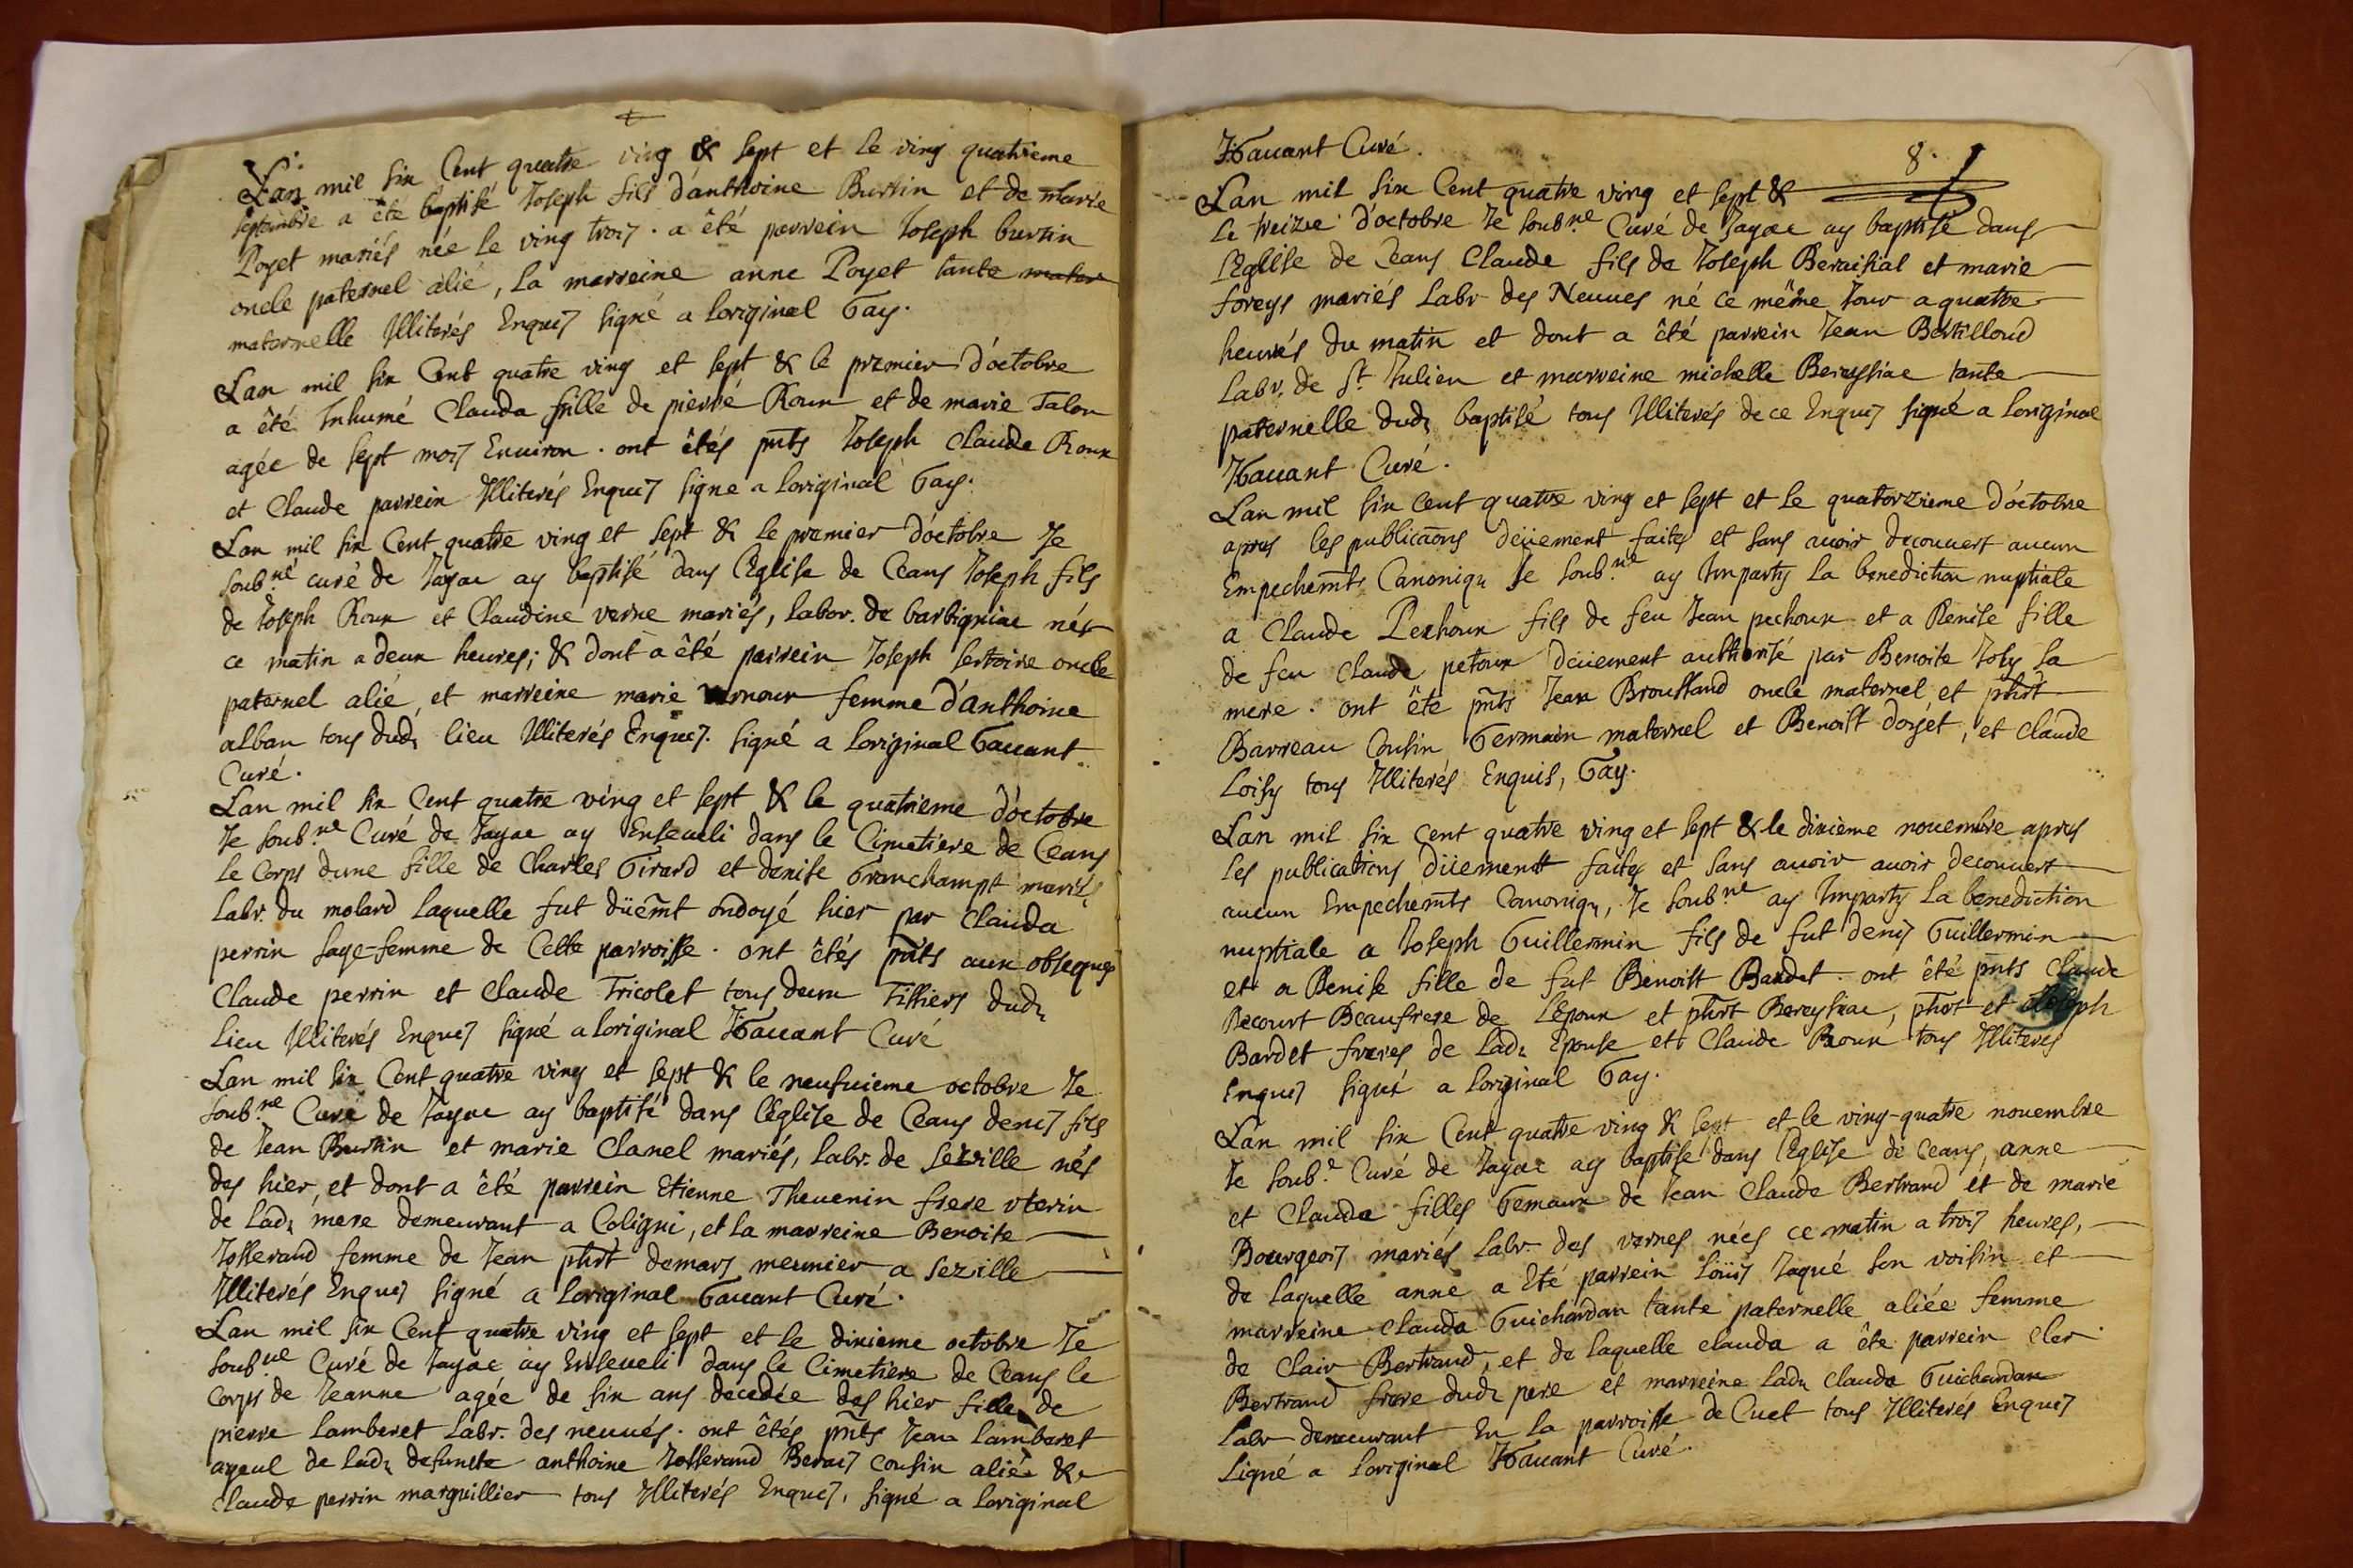 Lan mil six Cent quatre ving & sept et le ving quatrieme
septembre a êté baptisé Joseph fils d'anthoine Burtin et de marie
Poyet mariés née le ving trois. a êté parrein Joseph burtin
oncle paternel alié, la marreine anne Poyet tante mater
maternelle Illiterés Enquis signé a loriginal Gay.
Lan mil six Cent quatre ving et sept & le premier d'octobre
a êté Inhumé Clauda fille de pierre Roux et de marie Talon
agée de sept mois Enuiron. ont êtés pnts Joseph Claude Roux
et Claude parrein Illiterés Enquis signe a loriginal Gay.
Lan mil six Cent quatre ving et sept & le premier d'octobre Je
soub.né curé de Jayac ay baptisé dans l'Eglise de Ceans Joseph fils
de Joseph Roux et Claudine verne mariés, labor. de barbigniac nés
ce matin a deux heures; & dont a êté parrein Joseph sertoire oncle
paternel alié, et marreine marie femme d'anthoine
alban tous dud. lieu Illiterés Enquis. signé a loriginal Gauant
Curé.
Lan mil six Cent quatre ving et sept & le quatrieme d'octobre
Je soub.ne Curé de Jayac ay Enseueli dans le Cimetiere de Ceans
le Corps dune fille de Charles Girard et denise Granchamp mariés
labr. du molard laquelle fut düemt ondoyé hier par Clauda
perrin sage-femme de Cette parroisse. ont êtés pnts aux obseques
Claude perrin et Claude Tricolet tous deux Tissiers dud.
lieu Illiterés Enquis signé a loriginal Gauant Curé
Lan mil six Cent quatre ving et sept & le neufuieme octobre Je
soub.ne Curé de Jayac ay baptisé dans l'Eglise de Ceans denis fils
de Jean Burtin et marie Clanel mariés, labr. de seville nés
des hier, et dont a êté parrein Etienne Theuenin frere vterin
de lad. mere demeurant a Coligni, et la marreine Benoite
Josserand femme de Jean phrt demars meunier a sezille
Illiterés Enquis signé a loriginal Gauant Curé.
Lan mil six Cent quatre ving et sept et le dixieme octobre Je
soub.ne Curé de Jayac ay Enseueli dans le Cimetiere de Ceans le
Corps de Jeanne agée de six ans decedée des hier fille de
pierre lamberet labr. des neuués. ont êtés pnts Jean lamberet
ayeul de lad. defuncte anthoine Josserand Berais cousin alié &
Claude perrin marguillier tous Illiterés Enquis. signé a loriginal
Gauant Curé.
8.
Lan mil six Cent quatre ving et sept &
le treizie d'octobre Je soub.ne Curé de Jayac ay baptisé dans
l'Eglise de Ceans Claude fils de Joseph Beraisiat et marie
foreys mariés labr des Neuues né ce même Jour a quatre
heurés du matin et dont a êté parrein Jean Bertilloud
labr. de St Julien et marreine michelle Bereysiac tante
paternelle dud. baptisé tous Illiterés de ce Enquis signé a loriginal
Gauant Curé.
Lan mil six Cent quatre ving et sept et le quatorzieme d'octobre
apres les publicaons düement faites et sans auoir decouuert aucun
Empechemts Canoniqu Je soub.ne ay Imparty la benediction nuptiale
a Claude Pechoux fils de feu Jean pechoux et a Denise fille
de feu Claude petoux düement authorisé par Benoite Joly sa
mere. ont été pnts Jean Broussaud oncle maternel et phrt
Barreau Cousin Germain maternel et Benoist dorjet, et Claude
Loisy tous Illiterés Enquis, Gay.
Lan mil six Cent quatre ving et sept & le dixieme nouembre apres
les publications düement faites et sans auoir auoir decouuert
aucun Empechemts Canoniqu, Je soub.ne ay Imparty la benediction
nuptiale a Joseph Guillermin fils de fut denis Guillermin
et a Denise fille de fut Benoist Bardet. ont êté pnts Claude
Decourt Beaufrere de l'Epoux et phrt Bereysiac, phrt et Joseph
Bardet freres de lad. Epouse et Claude Roux tous Illiteres
Enquis signé a loriginal Gay.
Lan mil six Cent quatre ving & sept et le ving-quatre nouembre
Je soub.e Curé de Jayac ay baptisé dans l'Eglise de Ceans, anne
et Clauda filles Gemaux de Jean Claude Bertrand et de marie
Bourgeois mariés labr. des vernes nées ce matin a trois heures,
de laquelle anne a Eté parrein Loüis Jaqué son voisin et
marreine Clauda Guichardan tante paternelle aliée femme
de Clair Bertrand, et de laquelle clauda a êté parrein cler
Bertrand frere dud. pere et marreine lad. clauda Guichardan
labr demeurant En la parroisse de Cuet tous Illiterés Enquis
signé a loriginal Gauant Curé.